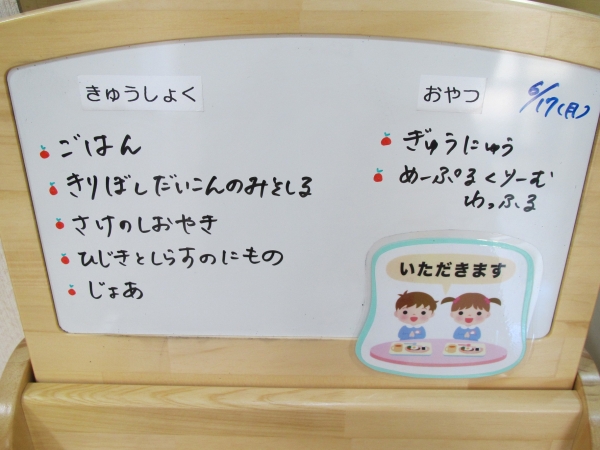 きゅうしょく
ごはん
きりぼしだいこんのみそしる
さけのしおやき
ひじきとしらすのにもの
じょあ
おやつ
6/17(月)
ぎゅうにゅう
めーぷるくりーむ
わっふる
いただきます